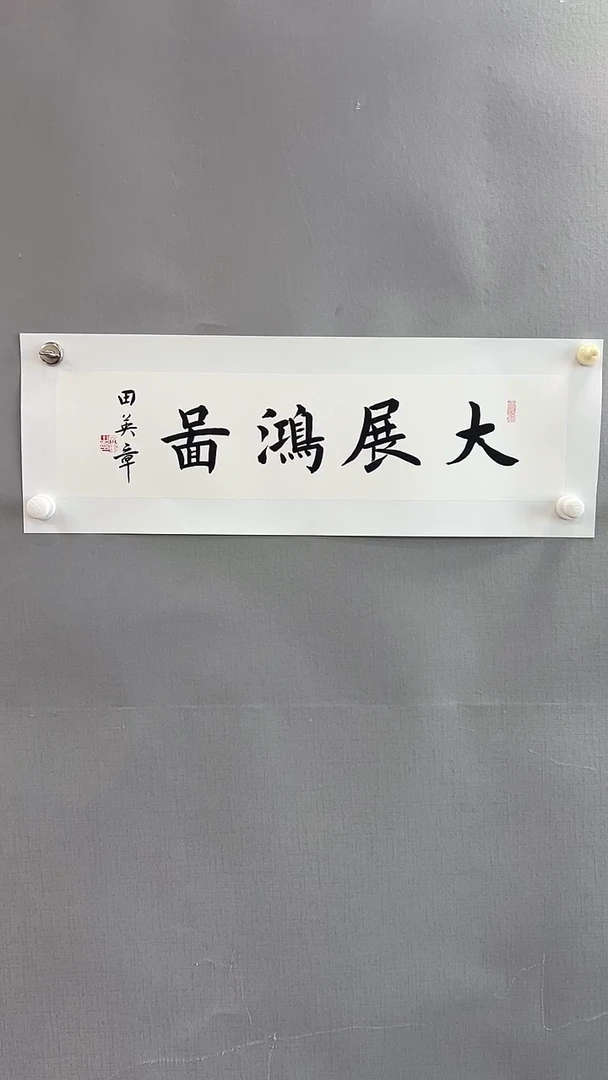 大展鴻啚
田英章